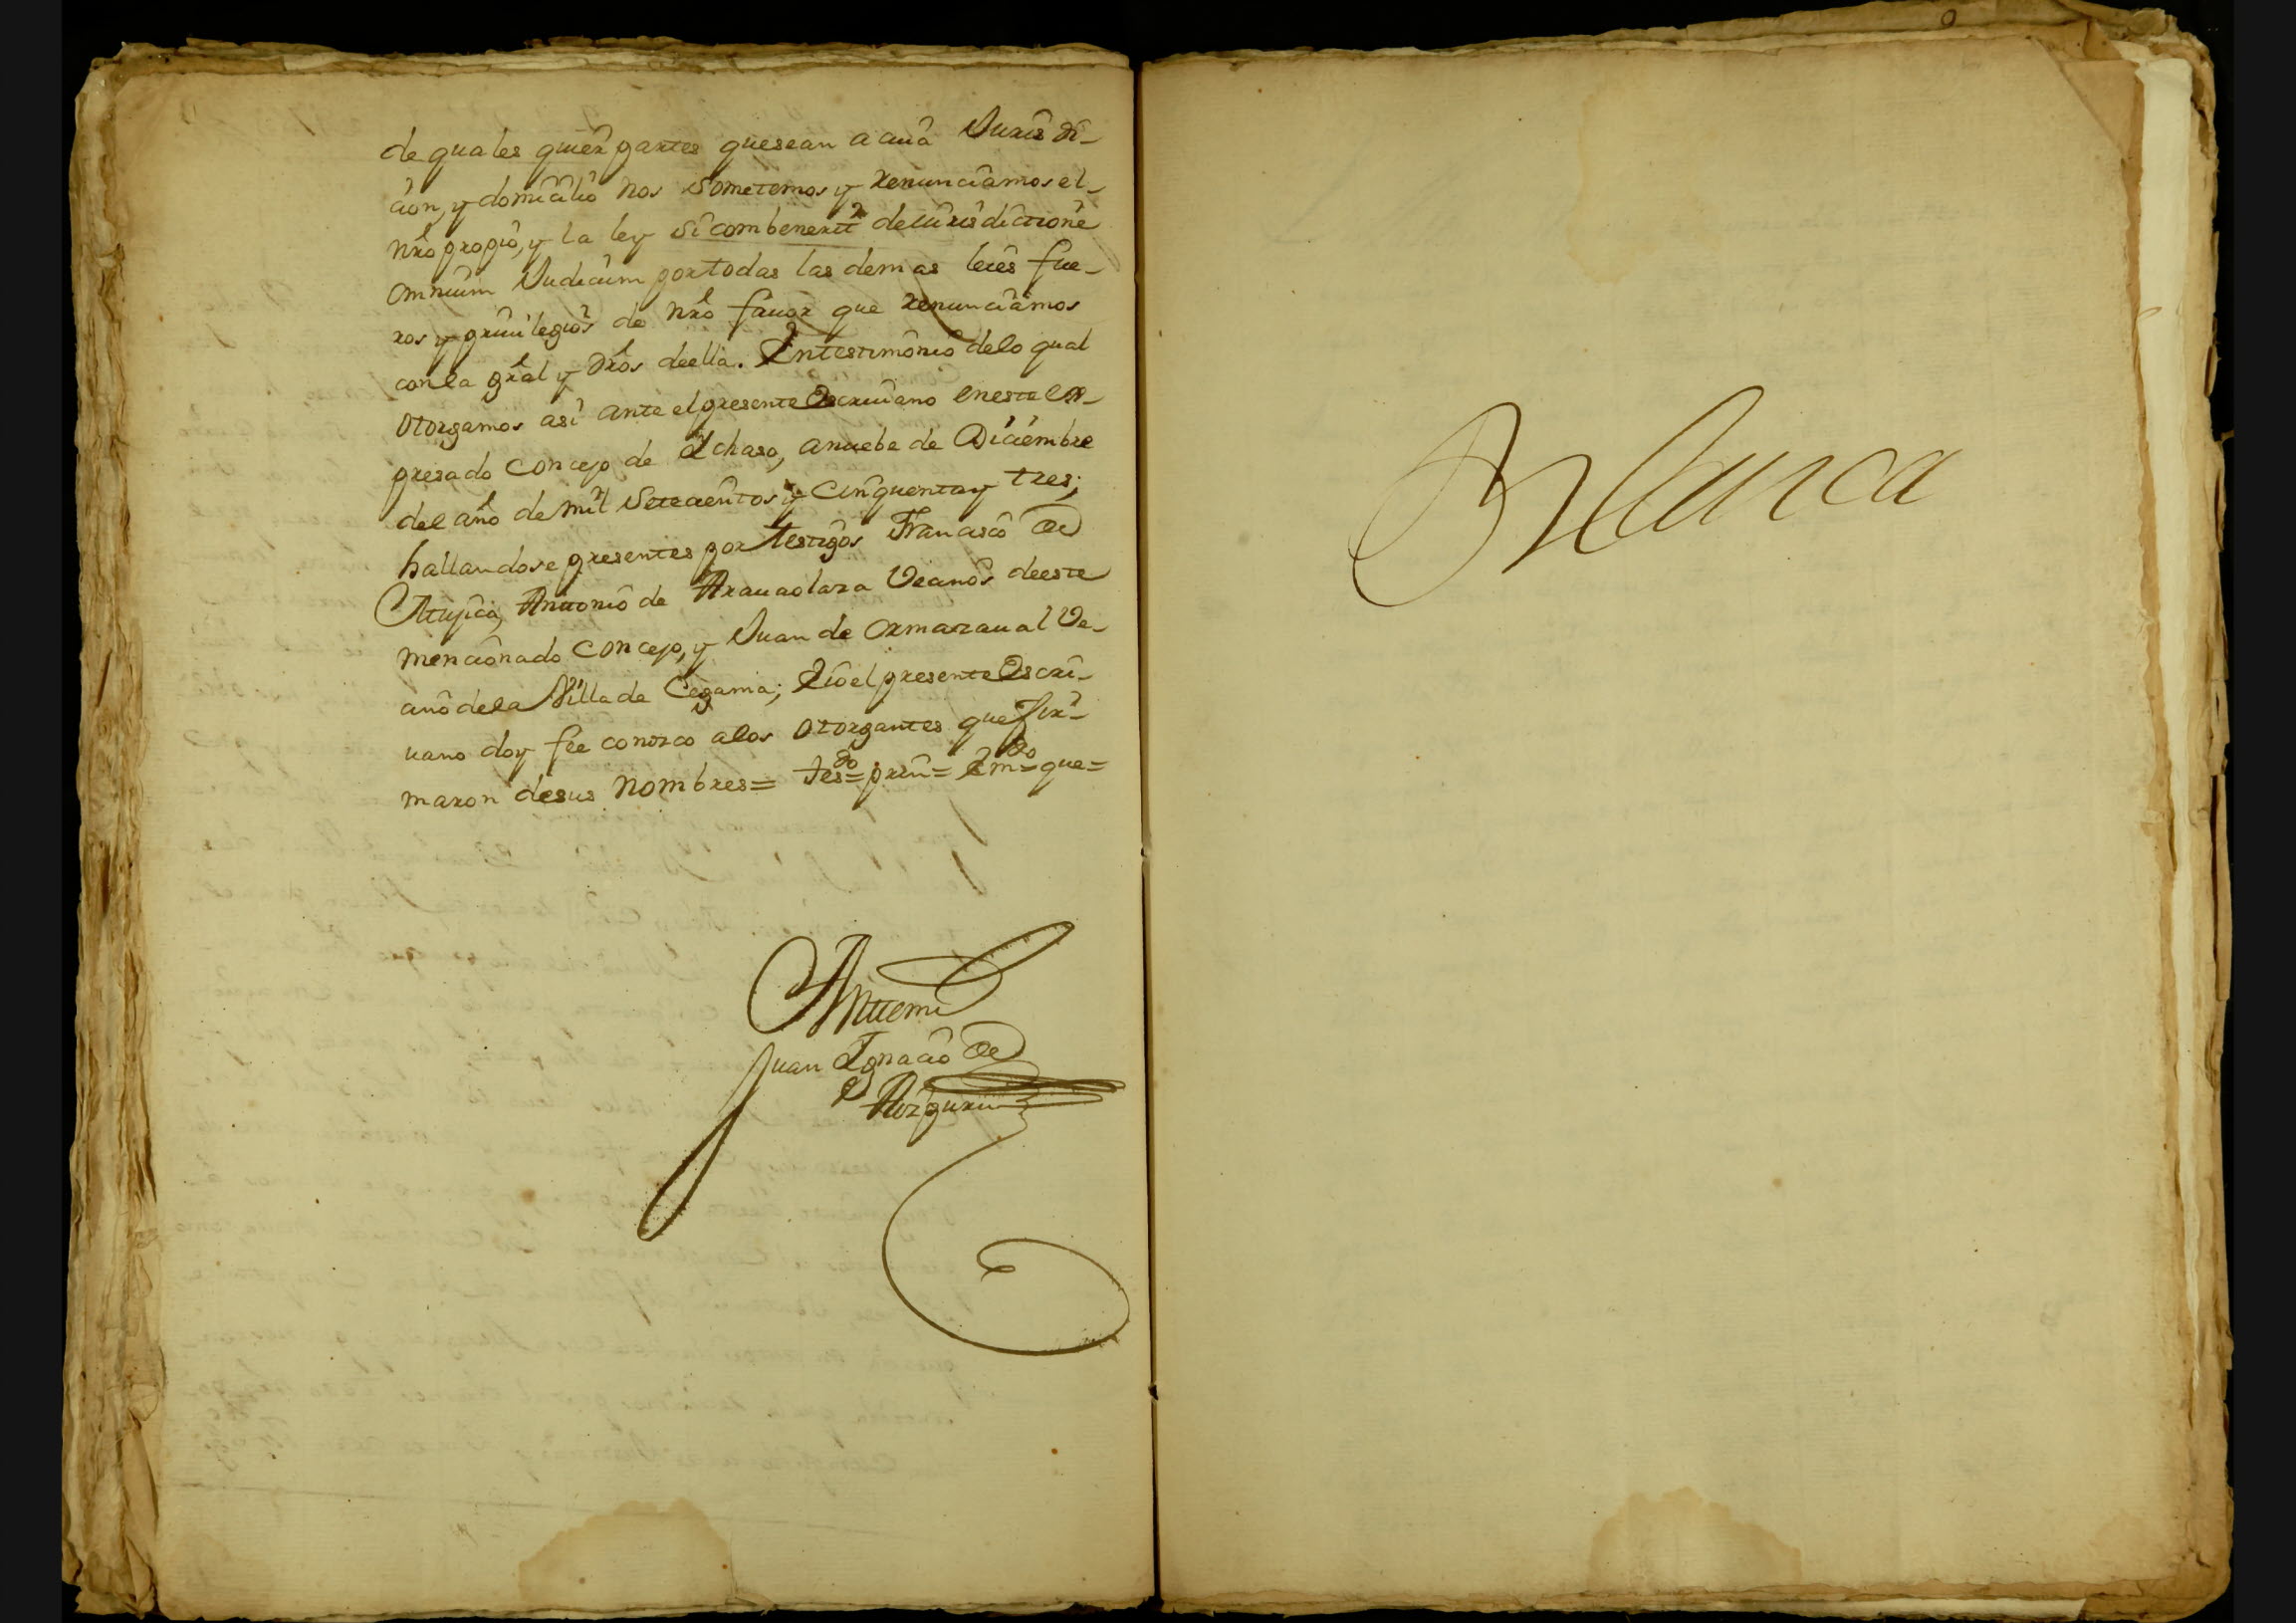 de quales quier partes quesean a cuia Jurisdi-
cion, y domicilio nos sometemos y renunciamos el-
nrō propio, y la ley Si combenerit de iurisdictione
omnium Judicum por todas las demas leies fue-
ros y priuilegios de nrō fauor que renunciamos
con la grāl y drōs deella. En testimonio delo qual
otorgamos asi ante el presente Escriuano en este ex-
presado Concejo de Ichaso, a nuebe de Diciembre
del año de mil Setecientos y Cinquenta y tres;
hallandose presentes por testigos Francisco de
Antonio de Vecinos deeste
mencionado Concejo, y Juan de Ormazaual Ve-
cino dela Villa de Cegama; E io el presente Escri-
uano doy fee conozco a los otorgantes que fir-
maron de sus nombres= tesdo= prin= Emdo= que=
Antemi
Juan Ignacio de
Aizpuru
Blanca